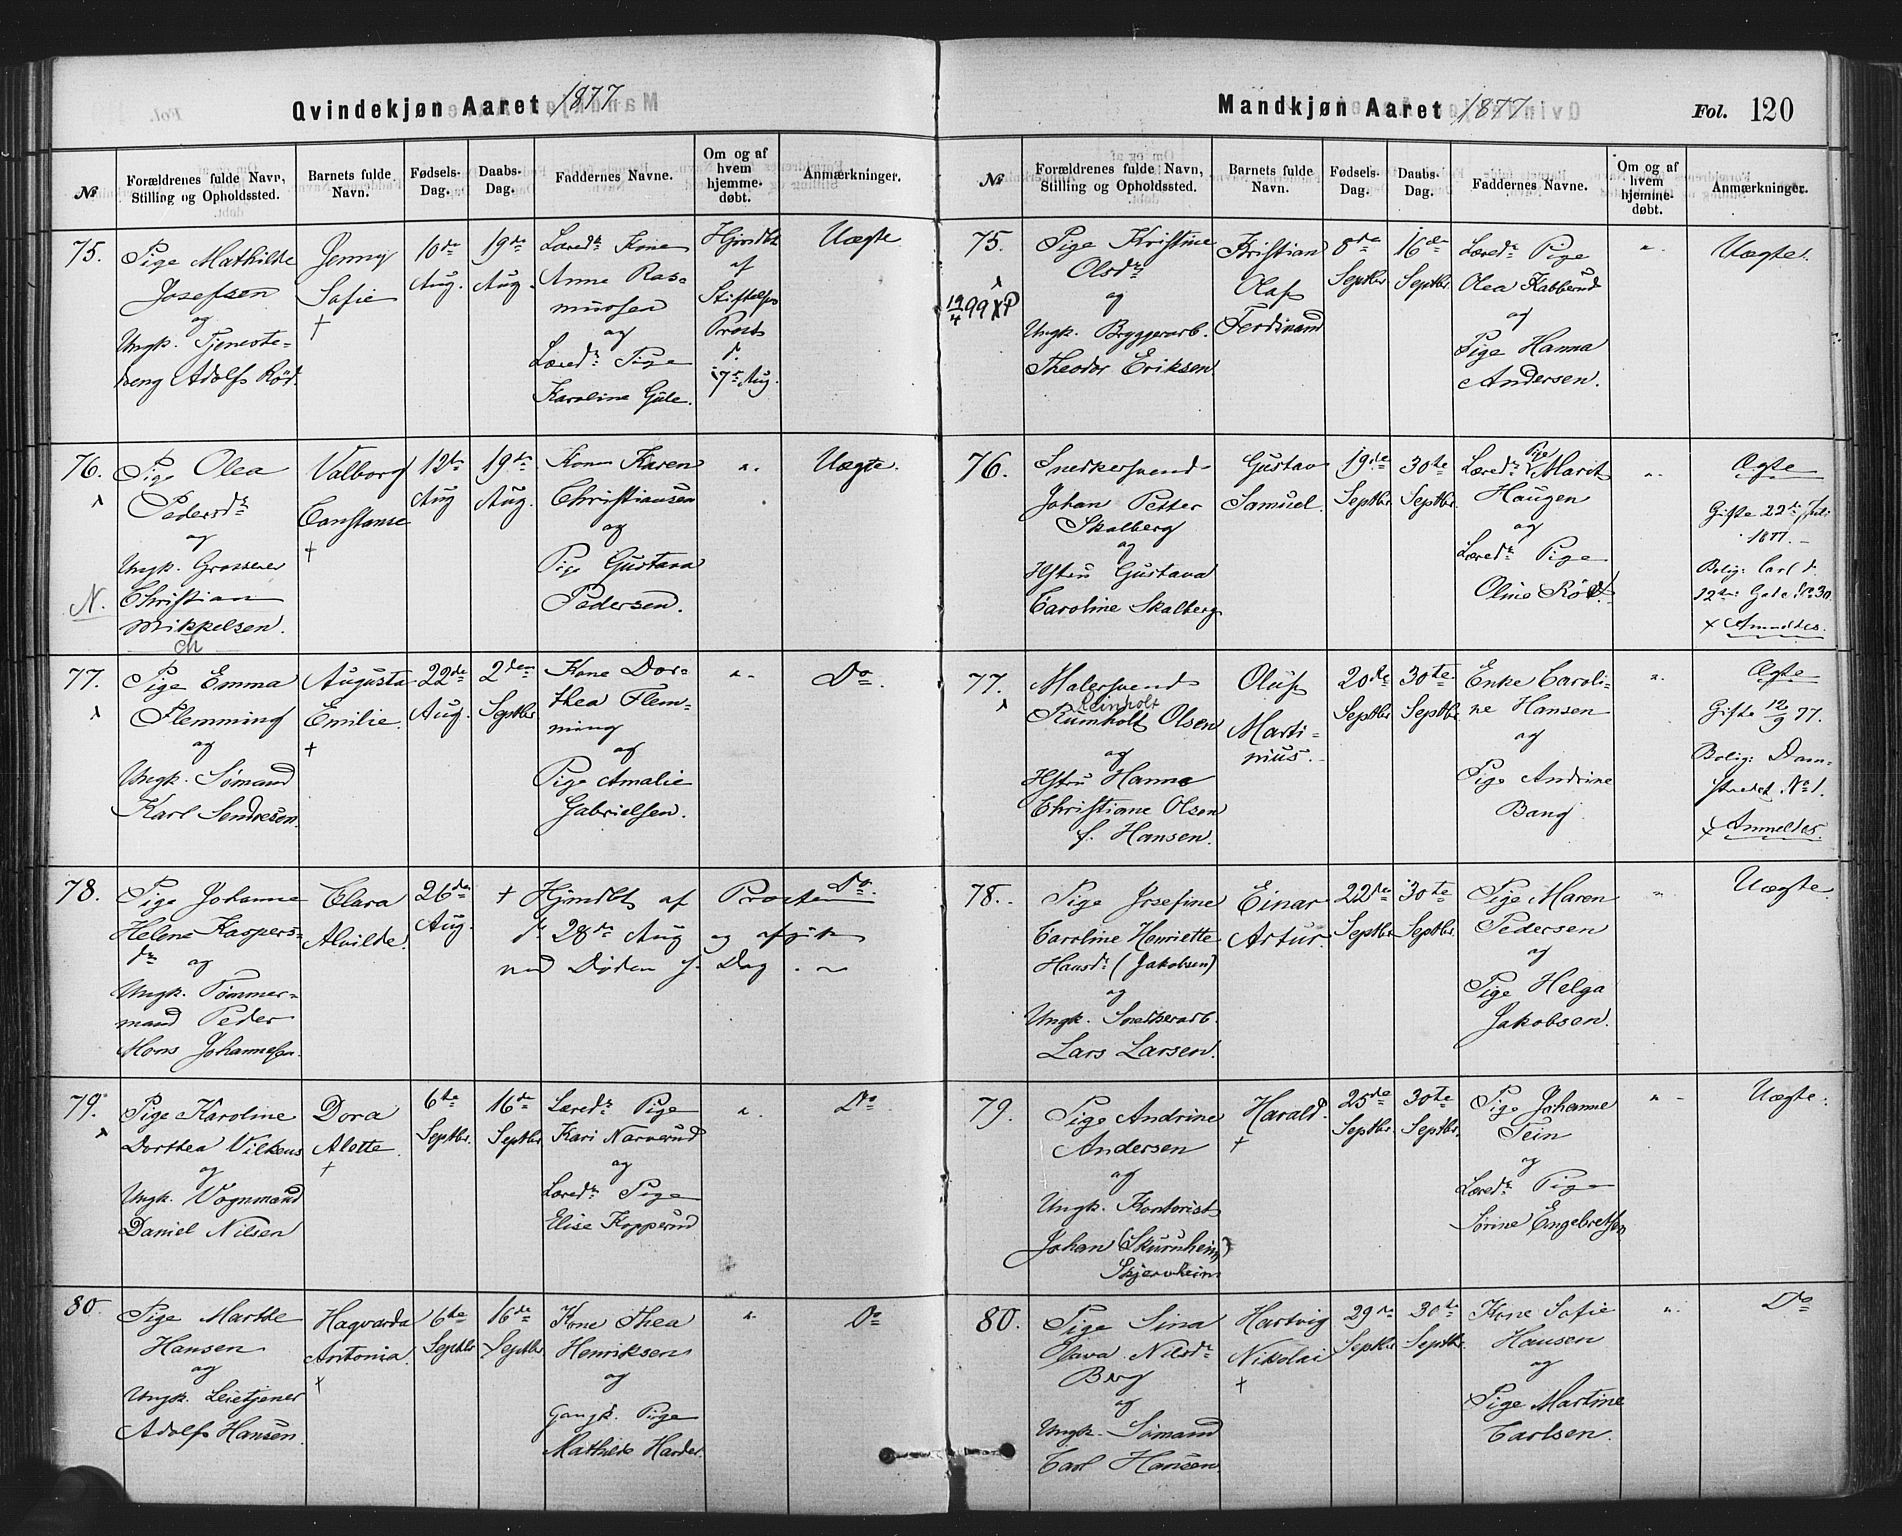 Qvindekjøn Aaret 1877
№
Forældrenes fulde Navn,
Stilling og Opholdssted.
Barnets fulde
Navn.
Fødsels-
Dag.
Daabs-
Dag.
Faddernes Navne.
Om og af
hvem
hjemme-
døbt.
Anmærkninger.
75.
Pige Mathilde
Josefsen
og
Ungk. Tjeneste-
dreng Adolf Rød.
Jenny
Sofie
+
10de
Aug.
19de
Aug.
Læredr Kone
Anne Ras-
mussen
og
Læredr Pige
Karoline Gule.
Hjmdbt
af
Stiftelses
Prost
d.
17de Aug.
Uægte
76.
N.
Pige Olea
Pedersdr
og
Ungk. Grosserer
Christian
Mikkelsen.
Valborg
Constanse
+
12te
Aug
19de
Aug.
Kone Karen
Christiansen
og
Pige Gustava
Pedersen.
".
Uægte.
77.
Pige Emma
Flemming
og
Ungk. Sømand
Karl Sendresen.
Augusta
Emilie.
+
22de
Aug.
2den
Septbr.
Kone Dor-
thea Flem-
ming
og
Pige Amalie
Gabrielsen.
".
Do.
78.
Pige Johanne
Helene Kaspers-
dr og
Ungk. Tømmer-
mand Peder
Mons Johannesen.
Clara
Alvilde.
26de
Aug.
+ Hjmdbt af Prosten
d. 28de Aug og afgik
ved Døden s. Dag.
Do.
79.
Pige Karoline
Dorthea Vilkens
og
Ungk. Vognmand
Daniel Nilsen
Dora
Alette.
+
6te
Septbr.
16de
Septbr.
Læredr Pige
Kari Narverud
og
Læredr Pige
Elise Kopperud
".
Do
80.
Pige Marthe
Hansen
og
Ungk. Leietjener
Adolf Hansen.
Hagvarda
Antonia.
+
6te
Septbr
16de
Septbr.
Kone Thea
Henriksen
og
Gangk. Pige
Mathilde Harder.
".
Do
Mandkjøn Aaret 1877
Fol. 120
№
Forældrenes fulde Navn,
Stilling og Opholdssted.
Barnets fulde
Navn.
Fødsels-
Dag.
Daabs-
Dag.
Faddernes Navne.
Om og af
hvem
hjemme-
døbt.
Anmærkninger.
75.
19/4 99 XP
Pige Kristine
Olsdr
og
Ungk. Bryggerarb.
Theodor Eriksen.
Kristian
Olaf
Ferdinand
8de
Septbr.
16de
Septbr.
Læredr Pige
Olea Kabberud
og
Pige Hanna
Andersen.
".
Uægte.
76.
Snedkersvend
Johan Petter
Skalberg
og
Hstru Gustava
Caroline Skalberg
Gustav
Samuel.
19de
Septbr.
30te
Septbr.
Læredr Pige Marit
Haugen
og
Læredr Pige
Oline Rød.
".
Ægte
Gifte 22de Juli
1877.
Bolig: Carl d.
12tes Gade No 30.
x Anmeldes.
77.
Malersvend
Reinholt
Rumholt Olsen
og
Hstru Hanna
Christiane Olsen
f. Hansen.
Oluf
Marti-
nius.
20de
Septbr.
30te
Septbr.
Enke Caroli-
ne Hansen
og
Pige Andrine
Bang.
".
Ægte
Gifte 12/9 77.
Bolig: Dam-
strædet No 1.
x Anmeldes.
78.
Pige Josefine
Caroline Henriette
Hansdr (Jakobsen)
og
Ungk. Snedkerarb.
Lars Larsen.
Einar
Artur.
22de
Septbr.
30te
Septbr.
Pige Maren
Pedersen
og
Pige Helga
Jakobsen.
".
Uægte.
79.
Pige Andrine
Andersen
og
Ungk. Kontorist
Johan (Skurnheim)
Skjervheim
Harald.
+
25de
Septbr.
30te
Septbr.
Pige Johanne
Tein
og
Læredr Pige
Sørine Engebretsen
".
Uægte.
80.
Pige Sina
Java Nilsdr
Berg
og
Ungk. Sømand
Carl Hansen.
Hartvig
Nikolai
+
29de
Septbr.
30te
Septbr.
Kone Sofie
Hansen
og
Pige Martine
Carlsen.
".
Do